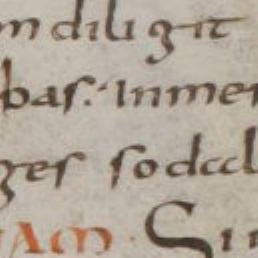 m diligit
bas. Inme
ges sodal
am. Si